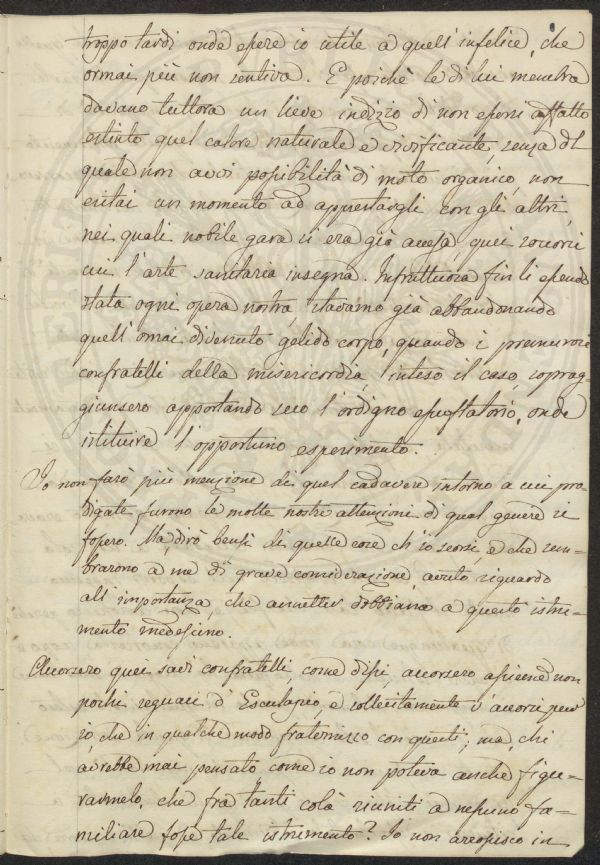 troppo tardi onde essere io utile a quell'infelice, che
ormai più non sentiva. E poichè le di lui membra
davano tuttora un lieve indizio di non essersi affatto
estinto quel calore naturale e vivificante, senza del
quale non avvi possibilità di moto organico, non
esitai un momento ad apprestargli con gli altri,
nei quali nobile gara si era già accesa, quei soccorsi
cui l'arte sanitaria insegna. Infruttuosa fin lì essendo
stata ogni opera nostra, stavamo già abbandonando
quell'omai divenuto gelido corpo, quando i premurosi
confratelli della misericordia, inteso il caso, soprag-
giunsero apportando seco l'ordigno insufflatorio, onde
istituire l'opportuno esperimento.
Io non farò più menzione di quel cadavere intorno a cui pro-
digate furono le molte nostre attenzioni di qual genere si
fossero. Ma dirò bensì di quelle cose ch'io scorsi, e che sem-
brarono a me di grave considerazione, avuto riguardo
all'importanza, che annetter dobbiamo a questo istru-
mento medesimo.
Accorsero quei savi confratelli, come dissi, accorsero assieme non
pochi seguaci d'Esculapio, e sollecitamente v'accorsi pur
io, che in qualche modo fraternizzo con questi; ma, chi
avrebbe mai pensato come io non poteva anche figu-
rarmelo, che fra tanti colà riuniti a nessuno fa-
miliare fosse tale istrumento? Io non arrossisco in